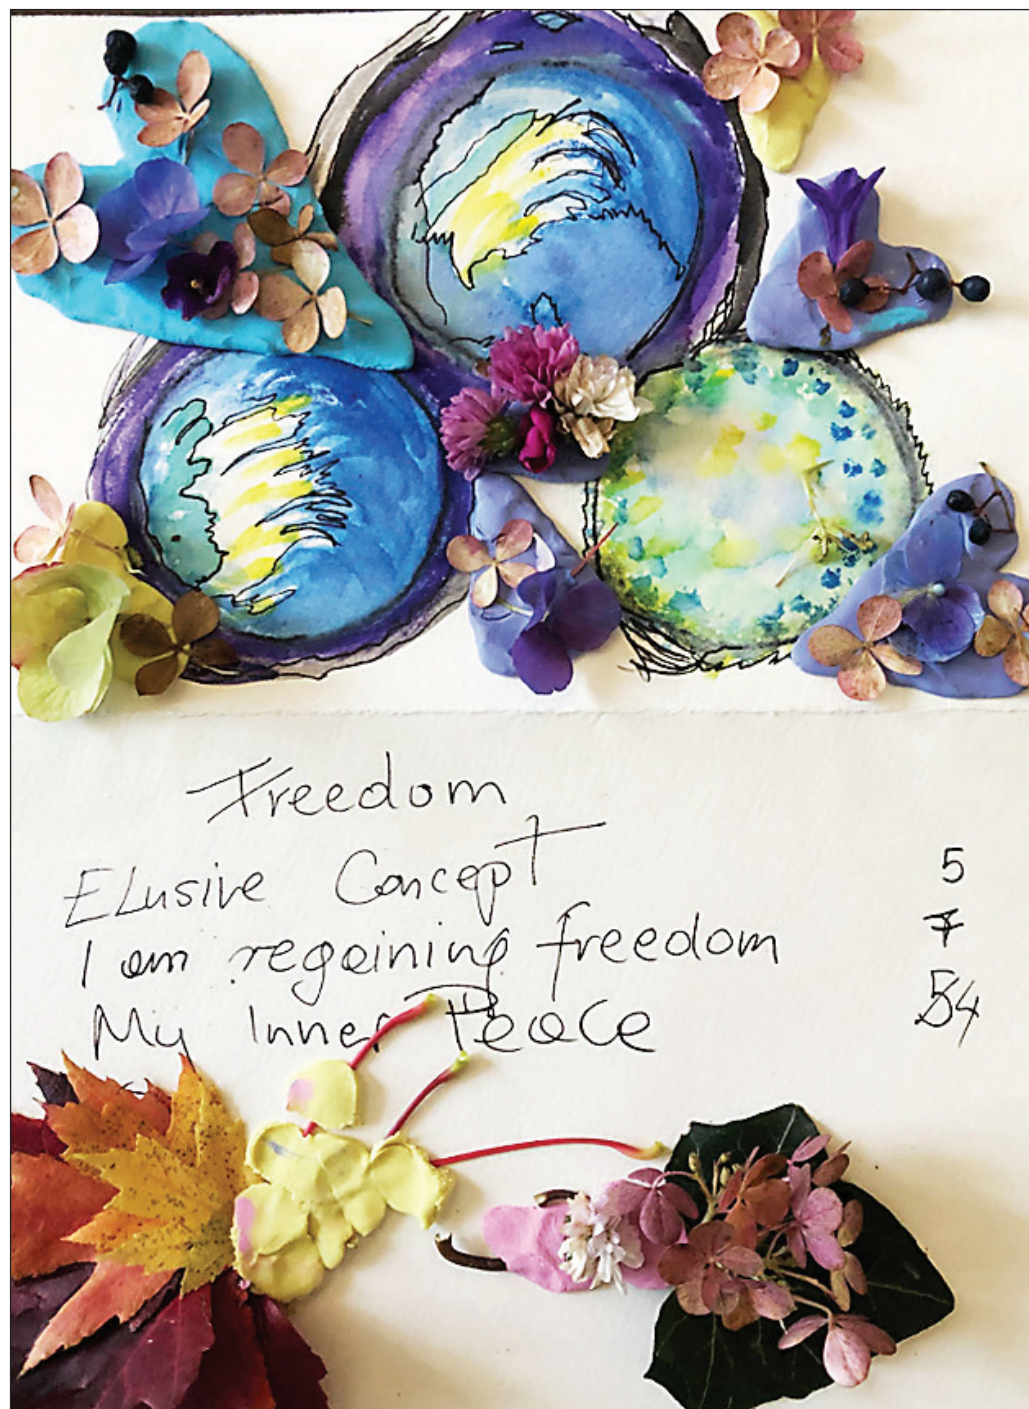 Freedom
ELusive Concept 5
I am regaining freedom 7
My Inner Peace 54